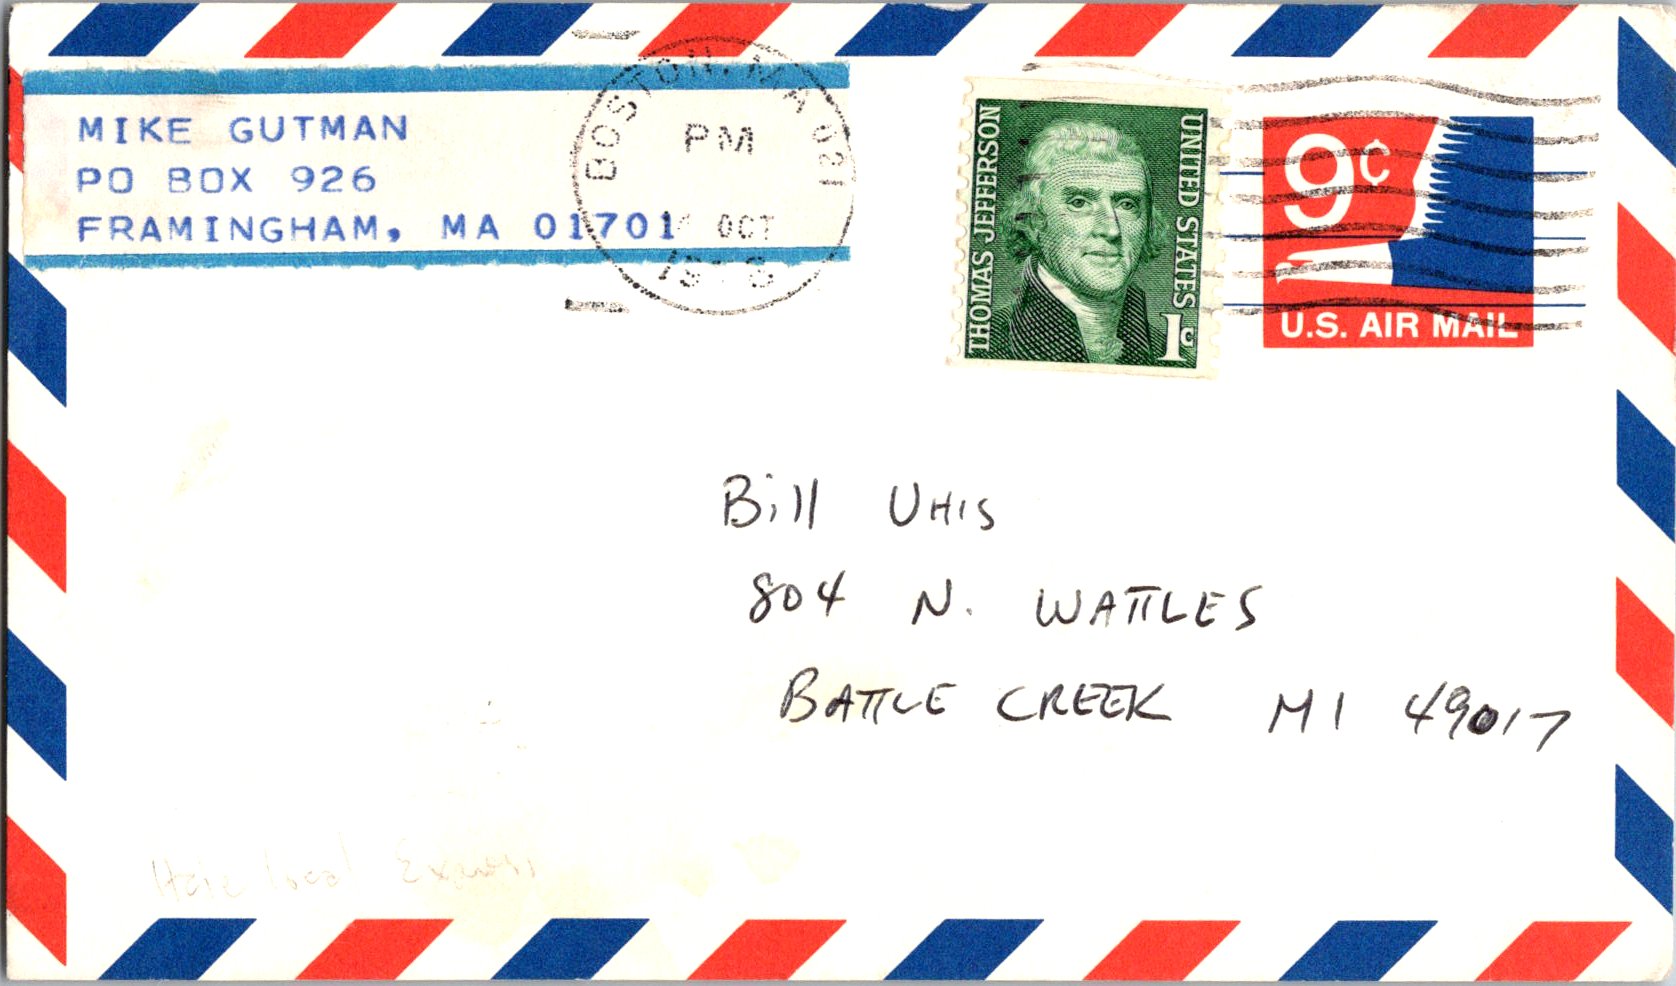 MIKE GUTMAN
PO BOX 926
FRAMINGHAM, MA 01701
BOSTON, MA 021
PM
OCT
THOMAS JEFFERSON
UNITED STATES
1c
9¢
U.S. AIR MAIL
Bill UHIS
804 N. WATTLES
BATTLE CREEK MI 49017
local